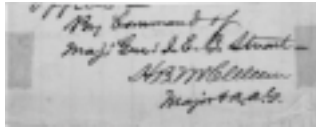 By Command of
Maj: Genl: J. E. B. Stuart —
H B McClellan
Major & A.A.G.